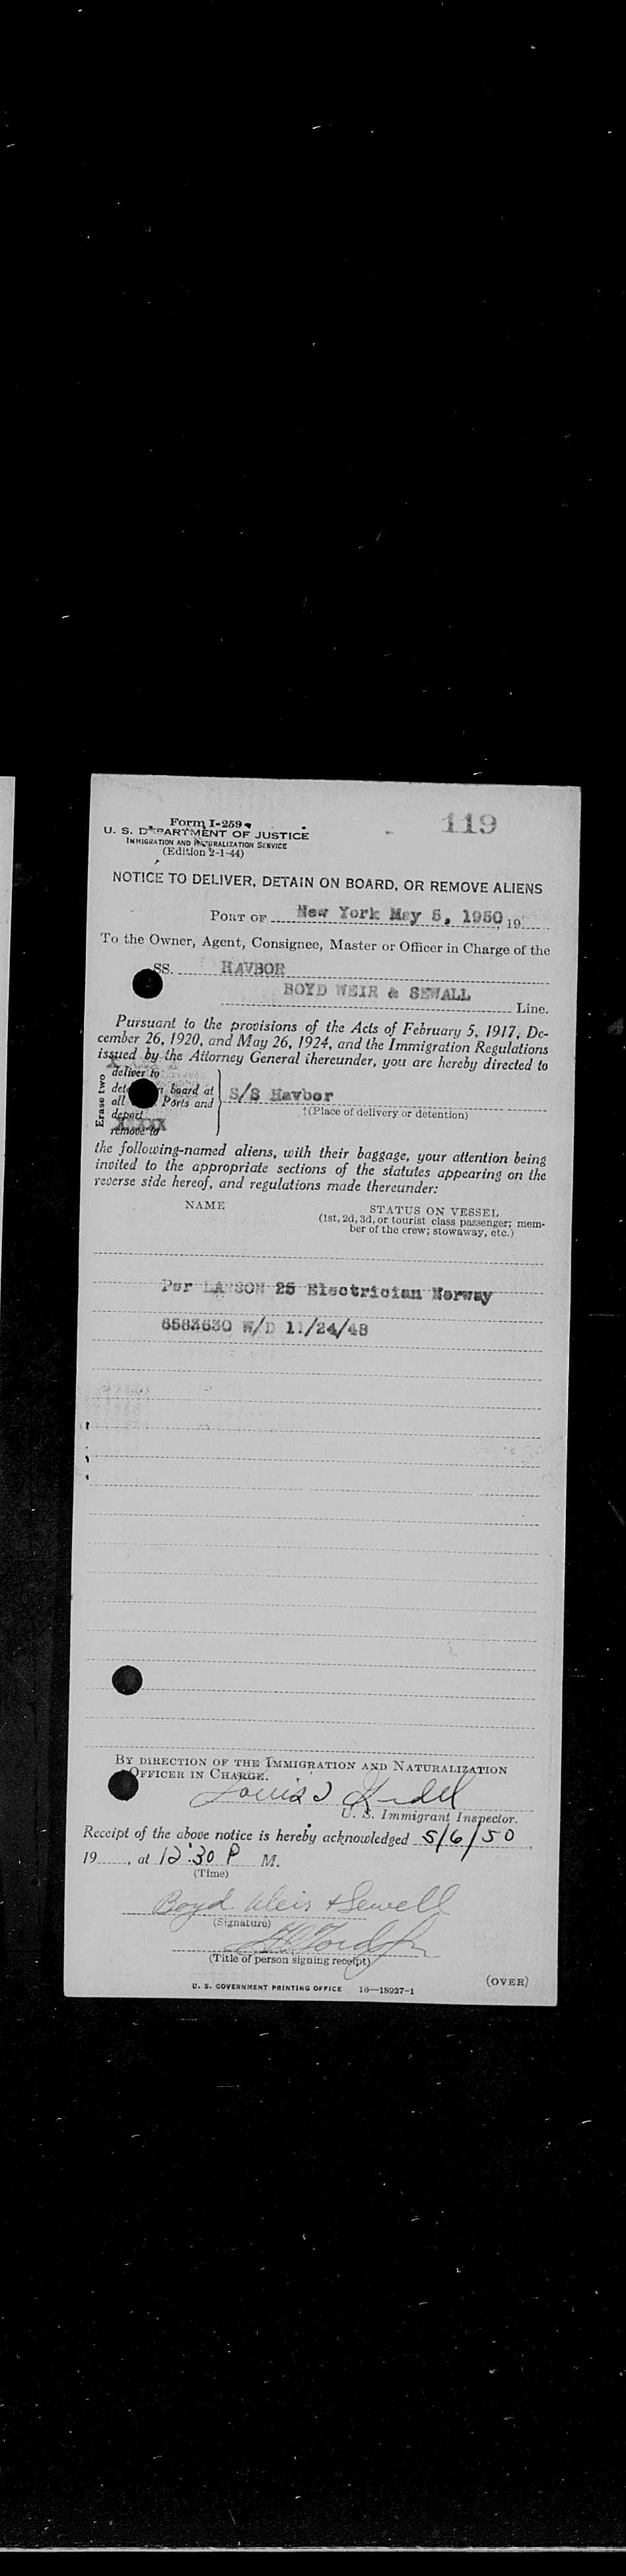 Form I-259
U. S. DEPARTMENT OF JUSTICE
IMMIGRATION AND NATURALIZATION SERVICE
(Edition 2-1-44)
119
NOTICE TO DELIVER, DETAIN ON BOARD, OR REMOVE ALIENS
PORT OF New York May 5, 1950, 19
To the Owner, Agent, Consignee, Master or Officer in Charge of the
SS. HAVBOR
BOYD WEIR & SEWALL Line.
Pursuant to the provisions of the Acts of February 5, 1917, De-
cember 26, 1920, and May 26, 1924, and the Immigration Regulations
issued by the Attorney General thereunder, you are hereby directed to
Erase two
deliver to
board at
all Ports and
depart
remove to
S/S Havbor
†(Place of delivery or detention)
the following-named aliens, with their baggage, your attention being
invited to the appropriate sections of the statutes appearing on the
reverse side hereof, and regulations made thereunder:
NAME
STATUS ON VESSEL
(1st, 2d, 3d, or tourist class passenger; mem-
ber of the crew; stowaway, etc.)
Per LARSON 25 Electrician Norway
6583630 W/D 11/24/48
BY DIRECTION OF THE IMMIGRATION AND NATURALIZATION
OFFICER IN CHARGE.
Louis J
U. S. Immigrant Inspector.
Receipt of the above notice is hereby acknowledged 5/6/50,
19, at 12:30 P M.
(Time)
Boyd Weir & Sewell
(Signature)
(Title of person signing receipt)
U. S. GOVERNMENT PRINTING OFFICE 16—18927-1
(OVER)